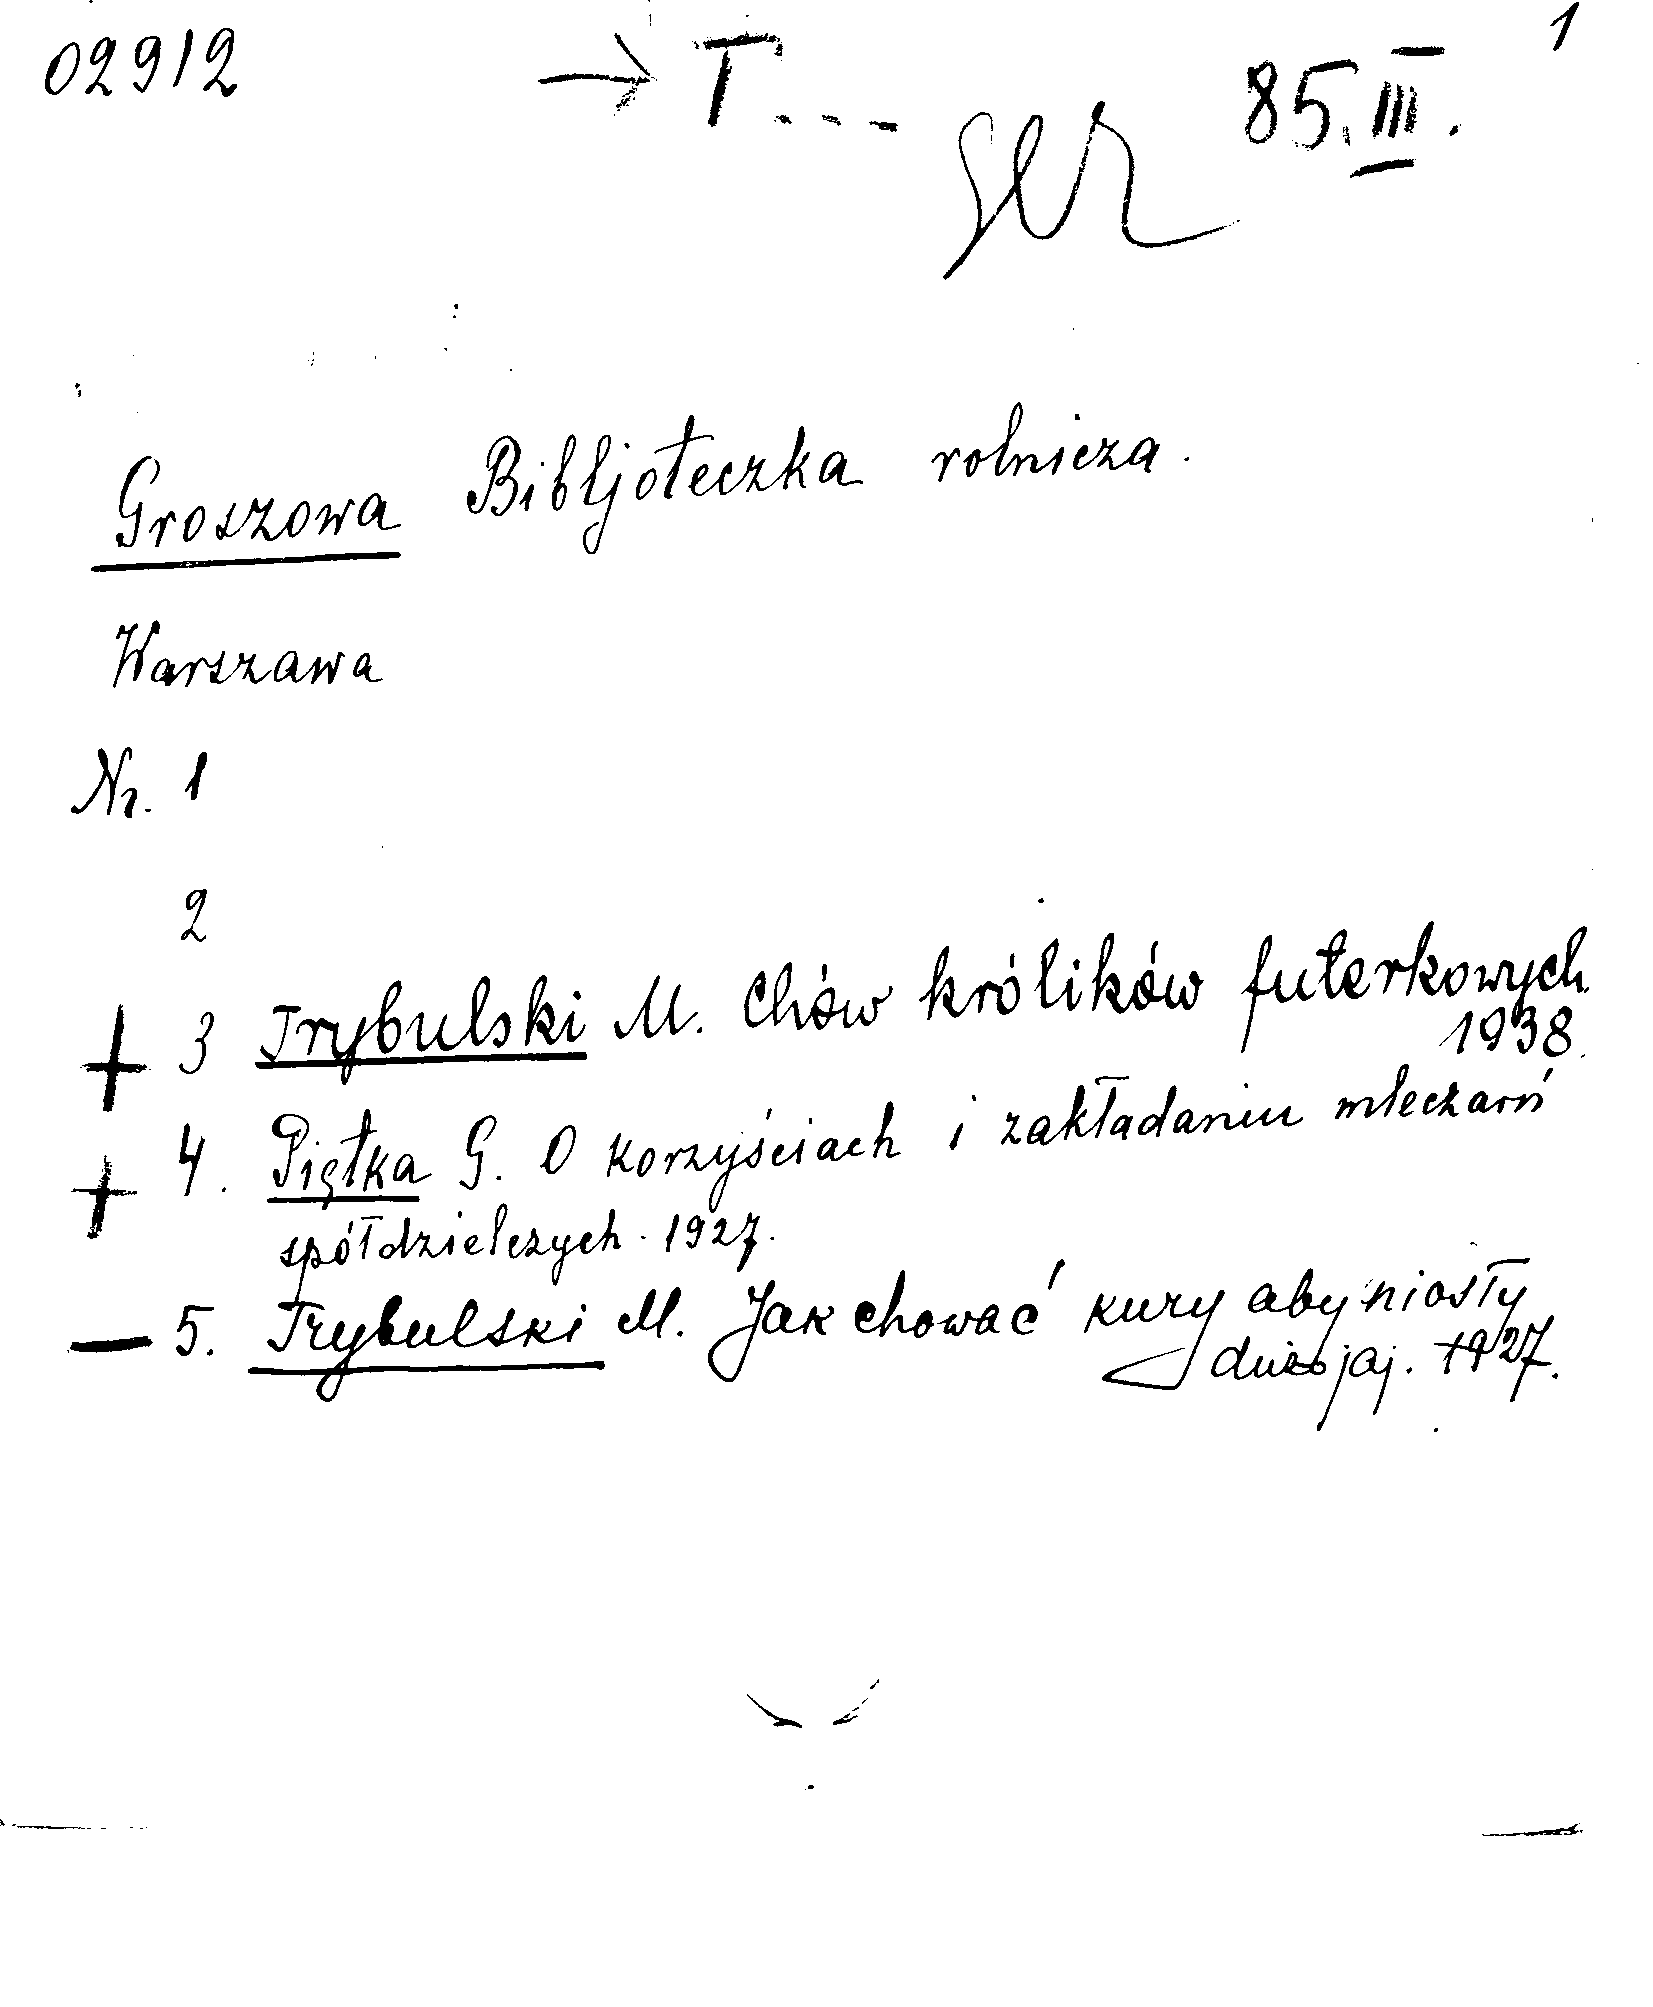 02912 → T.... ser 85.III. 1
Groszowa Bibljoteczka rolnicza.
Warszawa
Nr. 1
2
+ 3 Trybulski M. Chów królików futerkowych.
1938.
+ 4. Piętka G. O korzyściach i zakładaniu mleczarń
spółdzielczych. 1927.
— 5. Trybulski M. Jak chować kury aby niosły
dużo jaj. 1927.